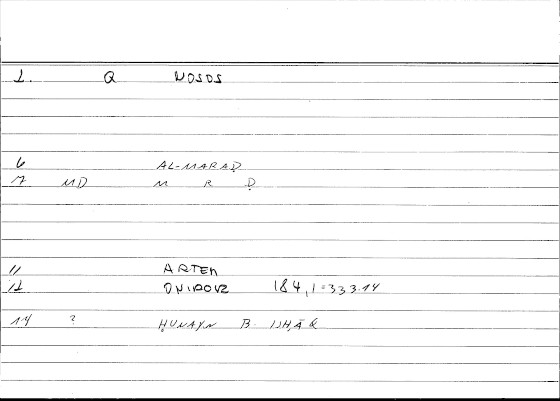 1. Q NOSOS
6 AL-MARAḌ
7 MD M R Ḍ
11 ARTEM
12 ONIROVZ 184,1=333.14
14 ? ḤUNAYN B. ISḤĀQ